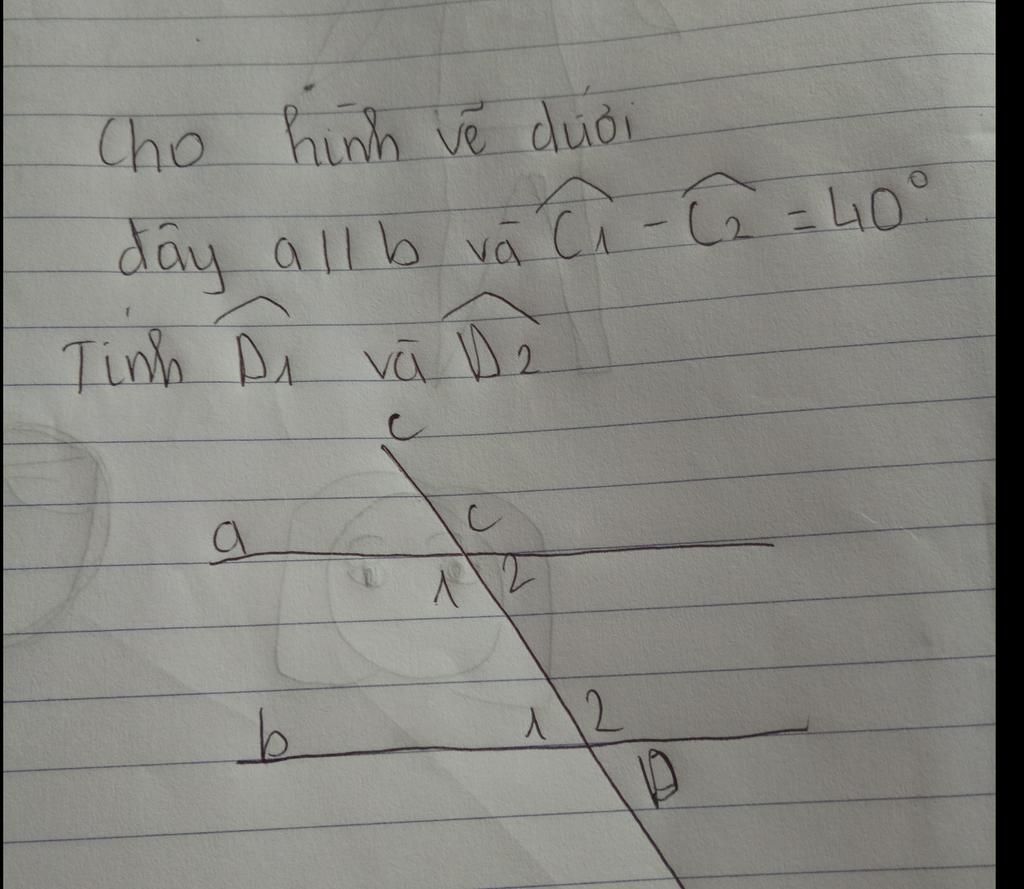 Cho hình vẽ dưới
đây a // b và Ĉ1 - Ĉ2 = 40°
Tính D̂1 và D̂2
c
a
c
1 2
1 2
b
D